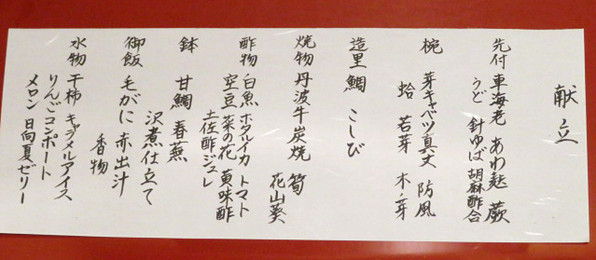 献立
先付 車海老 あわ麩 蕨
うど 針ゆば 胡麻酢合
椀 芽キャベツ真丈 防風
蛤 若芽 木ノ芽
造里 鯛 こしび
焼物 丹波牛炭焼 筍
花山葵
酢物 白魚 ホタルイカ トマト
空豆 菜の花 黄味酢
土佐酢ジュレ
鉢 甘鯛 春蕪
沢煮仕立て
御飯 毛がに 赤出汁
香物
水物 干柿 キャラメルアイス
りんごコンポート
メロン 日向夏ゼリー